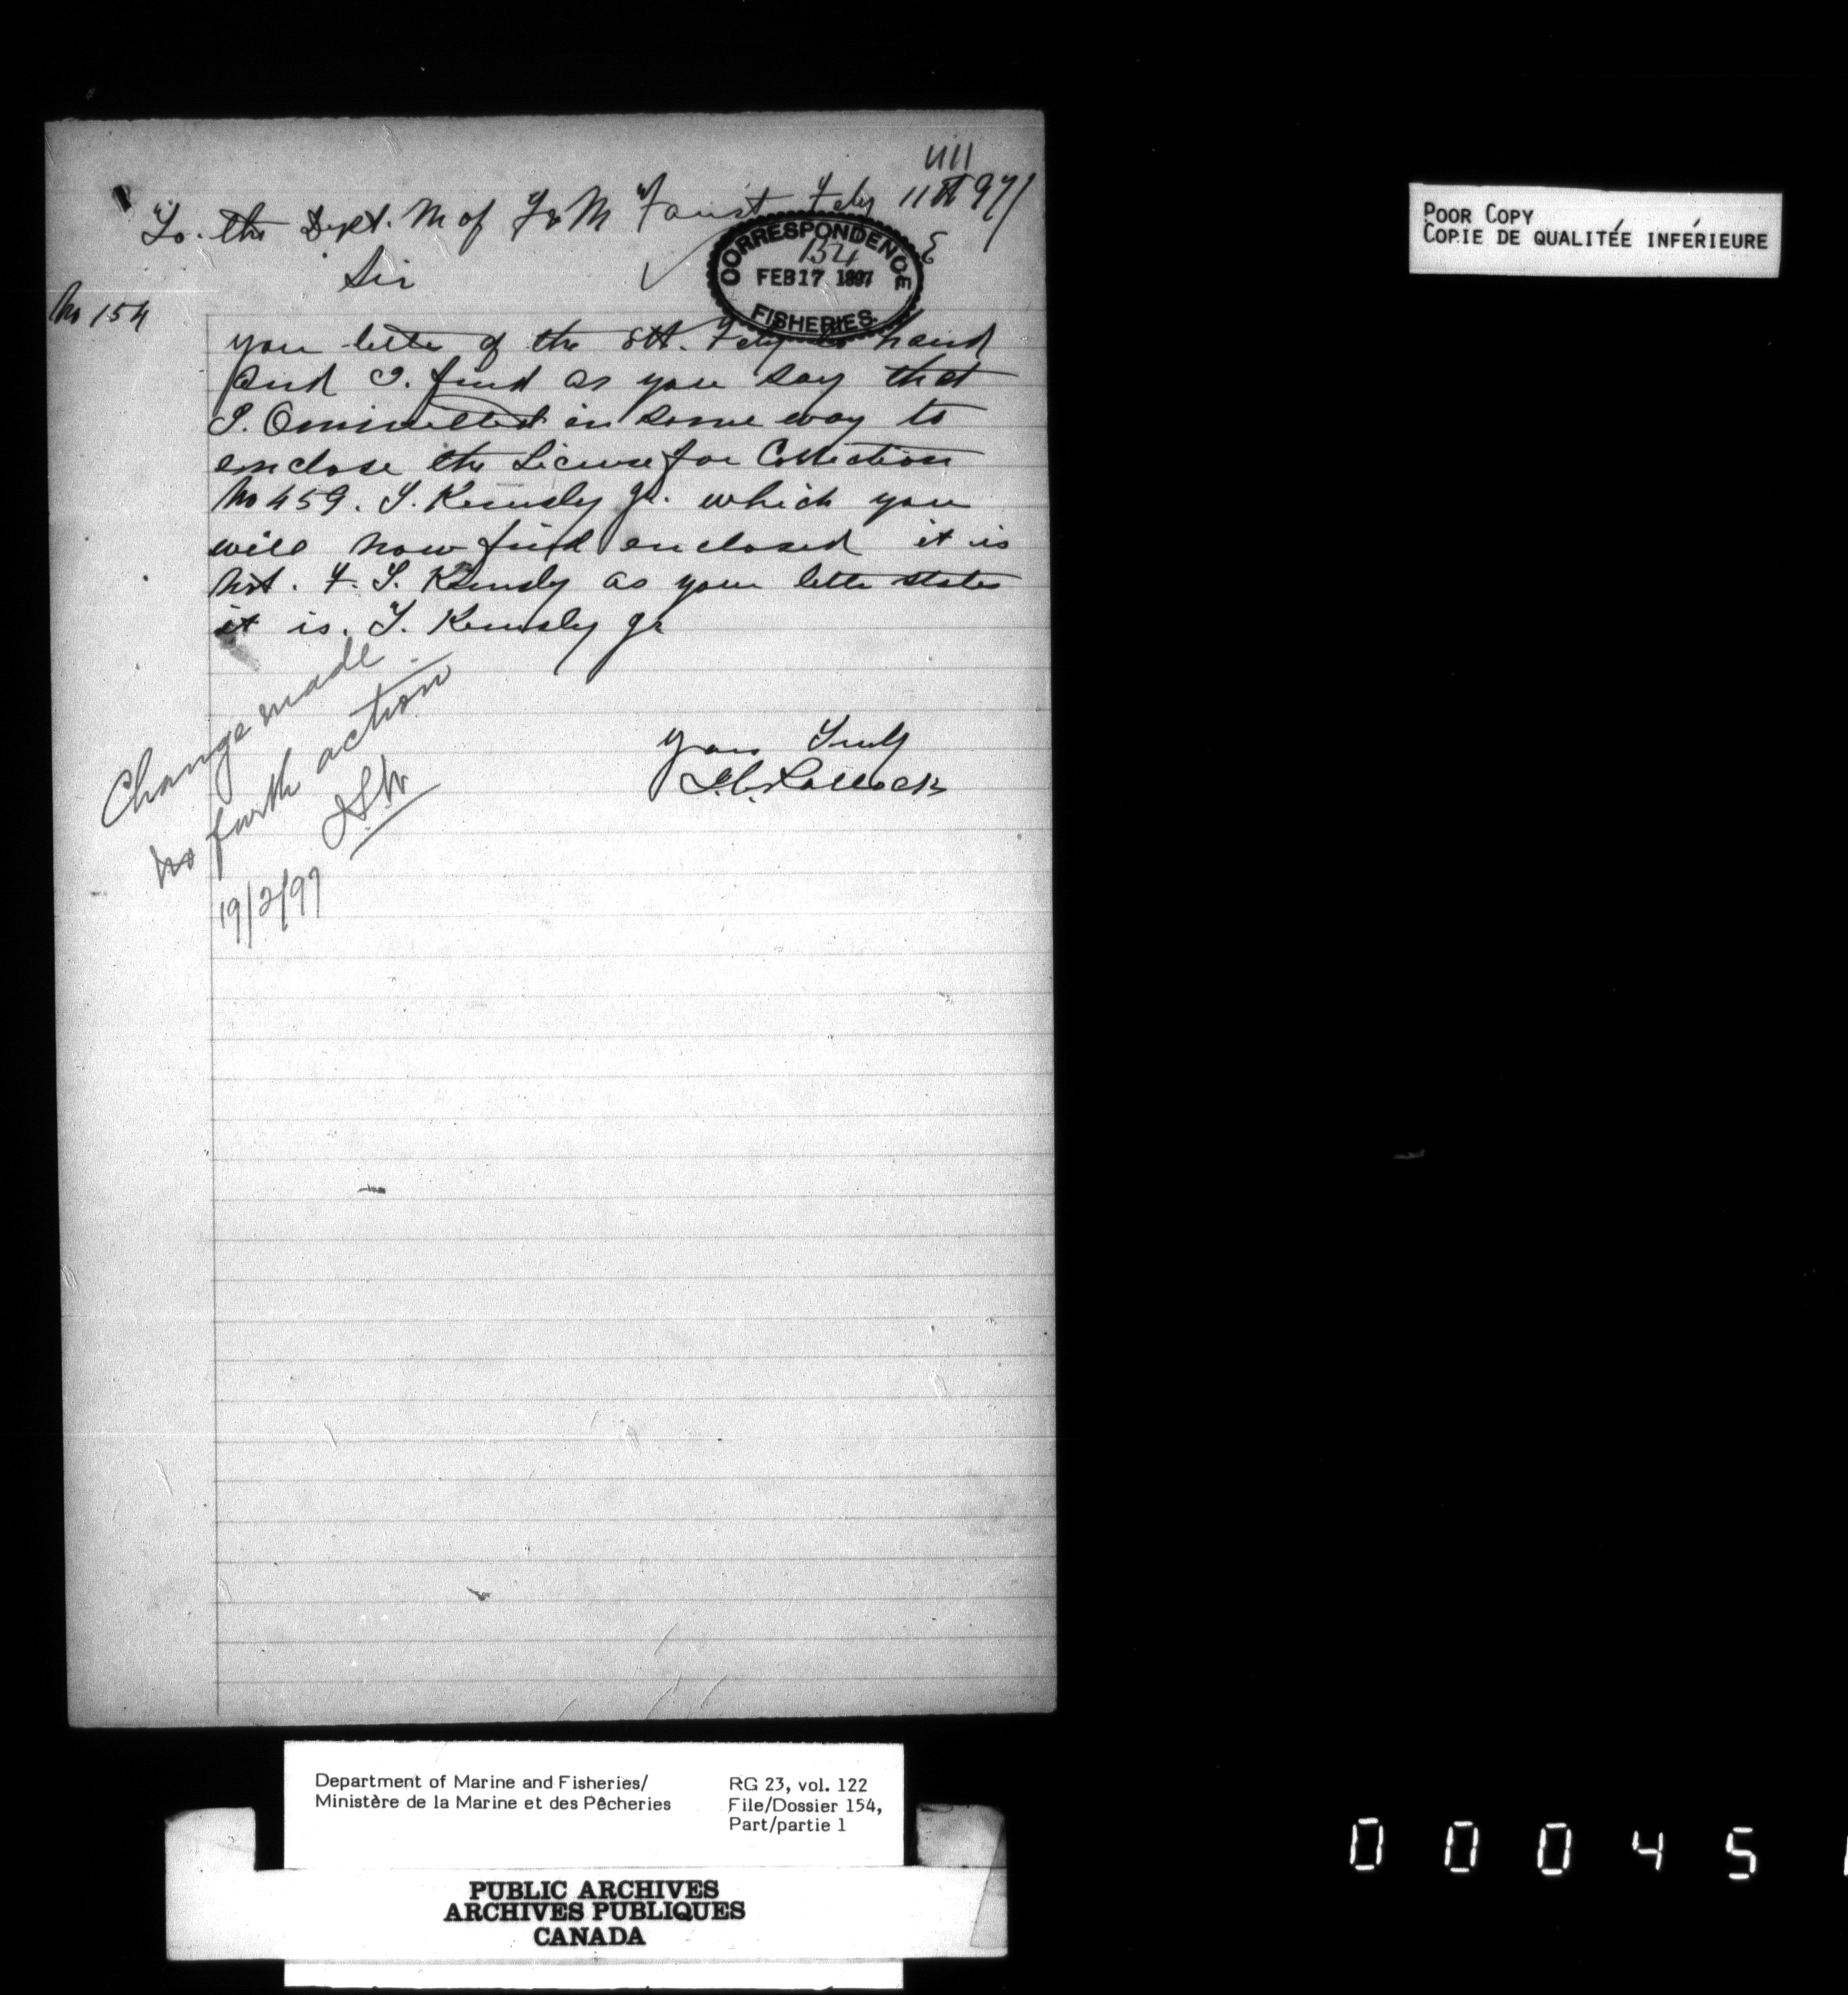 411
To. the Dept. M of F & M Faust Feby 11th 97/
Sir
CORRESPONDENCE
154
FEB 17 1897
FISHERIES.
No 154
your letter of the 8th. Feby to hand
and I. find as you say that
I. Ommitted in some way to
enclose the License for Collection
No 459. T. Kemsly Jr. which you
will now find enclosed it is
not. F. T. Kemsly as your letter states
it is. T. Kemsly Jr
Yours Truly
Change made.
no furth action
19/2/97
POOR COPY
COPIE DE QUALITÉE INFÉRIEURE
Department of Marine and Fisheries/
Ministère de la Marine et des Pêcheries
RG 23, vol. 122
File/Dossier 154,
Part/partie 1
PUBLIC ARCHIVES
ARCHIVES PUBLIQUES
CANADA
0 0 0 4 5